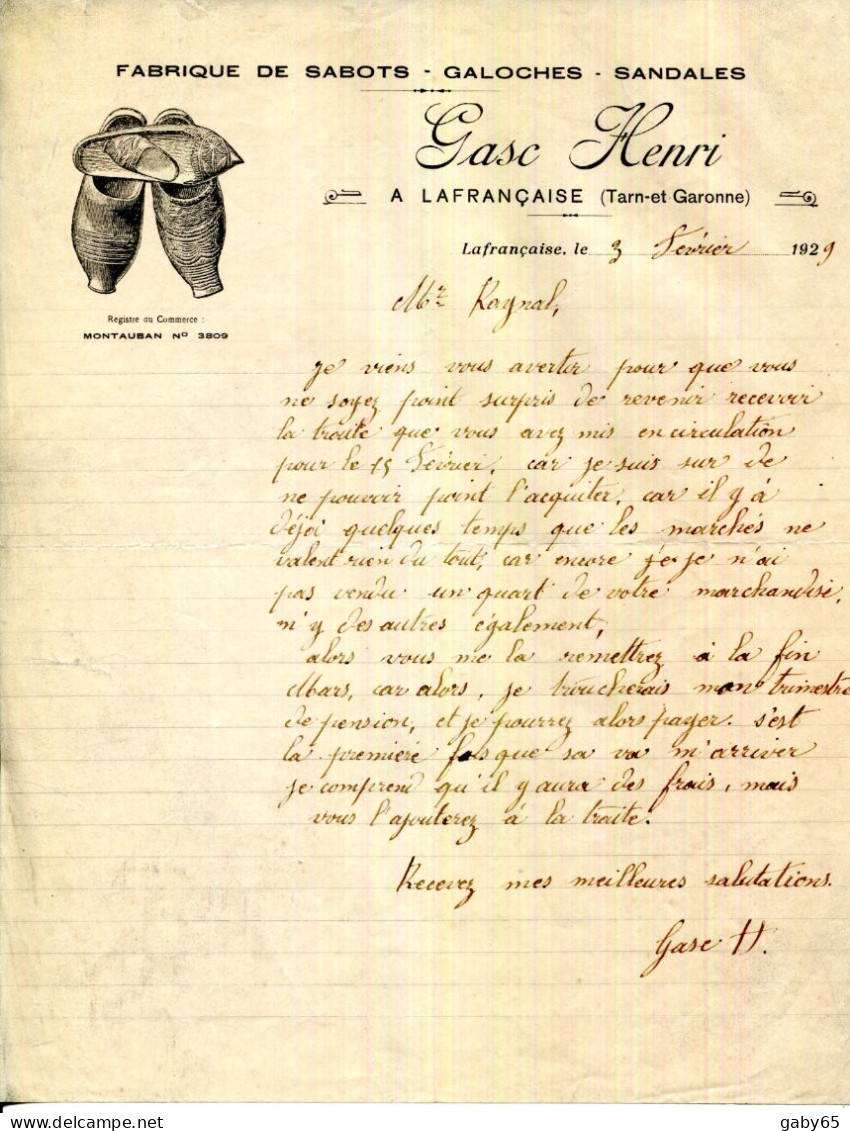 FABRIQUE DE SABOTS - GALOCHES - SANDALES
Gasc Henri
A LAFRANÇAISE (Tarn-et Garonne)
Lafrançaise, le 3 Février 1929
Registre du Commerce :
MONTAUBAN No 3809
Mr Raynal,
Je viens vous avertir pour que vous
ne soyez point surpris de revenir recevoir
la traite que vous avez mis en circulation
pour le 15 Février, car je suis sur de
ne pouvoir point l'acquiter, car il y à
déjà quelques temps que les marchés ne
valent rien du tout, car encore je je n'ai
pas vendu un quart de votre marchandise,
n'y des autres également,
alors vous me la remettrez à la fin
Mars, car alors, je toucherais mon trimestre
de pension, et je pourrez alors payer. s'est
la première fois que sa va m'arriver
je comprend qu'il y aura des frais, mais
vous l'ajouterez à la traite.
Recevez mes meilleures salutations.
Gasc H.
gaby65